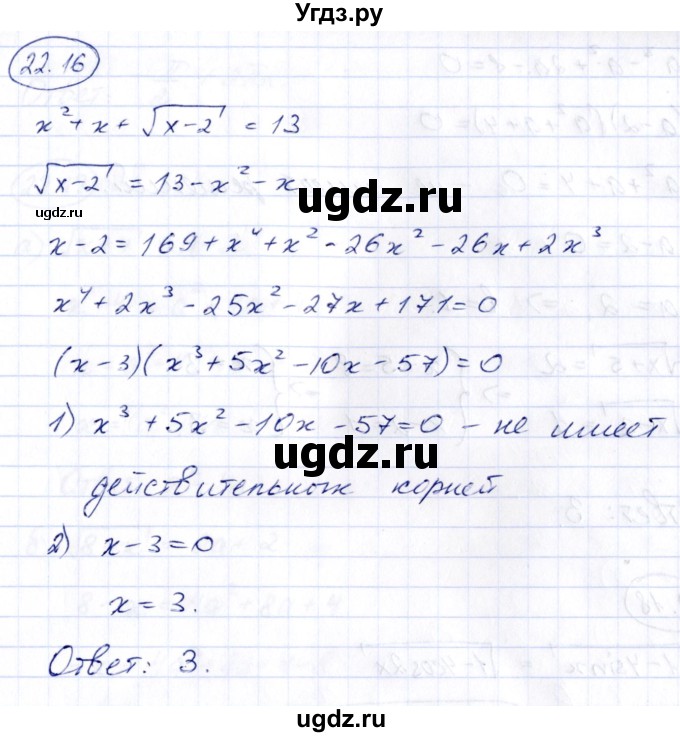 Угдз.ру
22.16
x² + x + √(x-2) = 13
√(x-2) = 13 - x² - x
ugdz.ru
ugdz.ru
x - 2 = 169 + x⁴ + x² - 26x² - 26x + 2x³
x⁴ + 2x³ - 25x² - 27x + 171 = 0
(x-3)(x³ + 5x² - 10x - 57) = 0
1) x³ + 5x² - 10x - 57 = 0 - не имеет
ugdz.ru
действительных корней
2) x - 3 = 0
x = 3.
Ответ: 3.
ugdz.ru